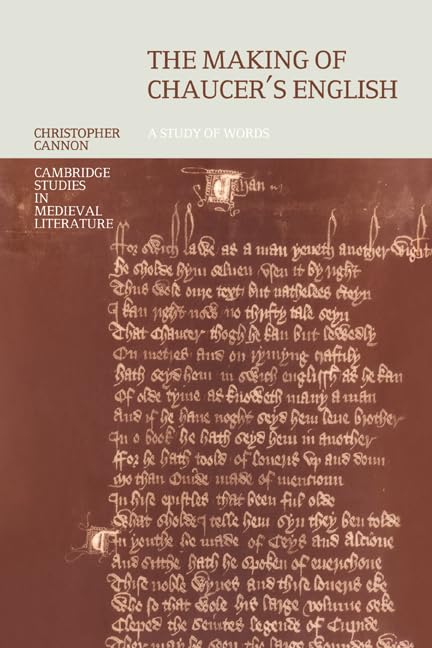 THE MAKING OF
CHAUCER'S ENGLISH
CHRISTOPHER
CANNON
A STUDY OF WORDS
CAMBRIDGE
STUDIES
IN
MEDIEVAL
LITERATURE
ffor swich lawe as a man yeueth another wight
He sholde hym seluen vsen it by right
Thus wole oure text but nathelees certeyn
I kan right now no thrifty tale seyn
That Chaucer thogh he kan but lewedly
On metres and on rymyng craftily
Hath seyd hem in swich englissh as he kan
Of olde tyme as knoweth many a man
And if he haue noght seyd hem leue brother
In o book he hath seyd hem in another
ffor he hath toold of loueris vp and doun
Mo than Ouide made of mencioun
In hise epistles that been ful olde
What sholde I telle hem syn they ben tolde
In youthe he made of Ceys and Alcione
And sitthe hath he spoken of euerichone
Thise noble wyues and thise loueris eke
Who so that wole his large volume seke
Cleped the seintes legende of Cupide